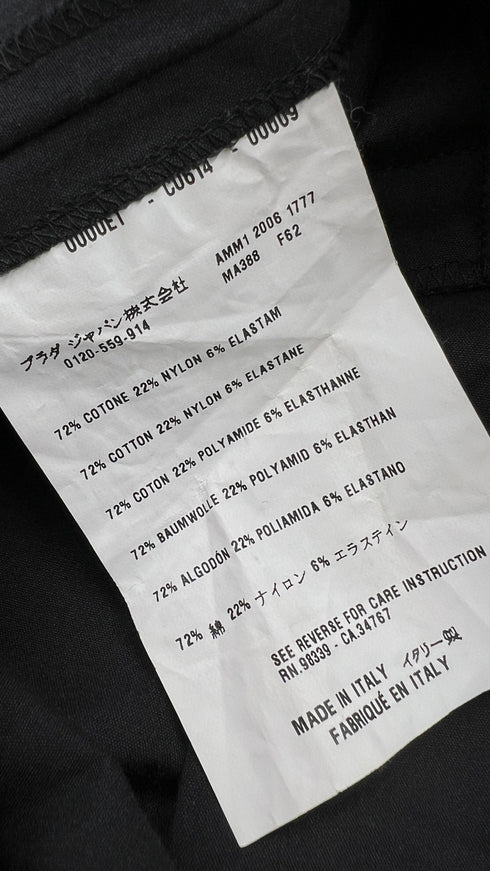 0000E1 - C0614 - 00009
AMM1 2006 1777
MA388 F62
プラダ ジャパン株式会社
0120-559-914
72% COTONE 22% NYLON 6% ELASTAM
72% COTTON 22% NYLON 6% ELASTANE
72% COTON 22% POLYAMIDE 6% ELASTHANNE
72% BAUMWOLLE 22% POLYAMID 6% ELASTHAN
72% ALGODÓN 22% POLIAMIDA 6% ELASTANO
72% 綿 22% ナイロン 6% エラステイン
SEE REVERSE FOR CARE INSTRUCTION
RN.98339 - CA.34767
MADE IN ITALY イタリー製
FABRIQUÉ EN ITALY